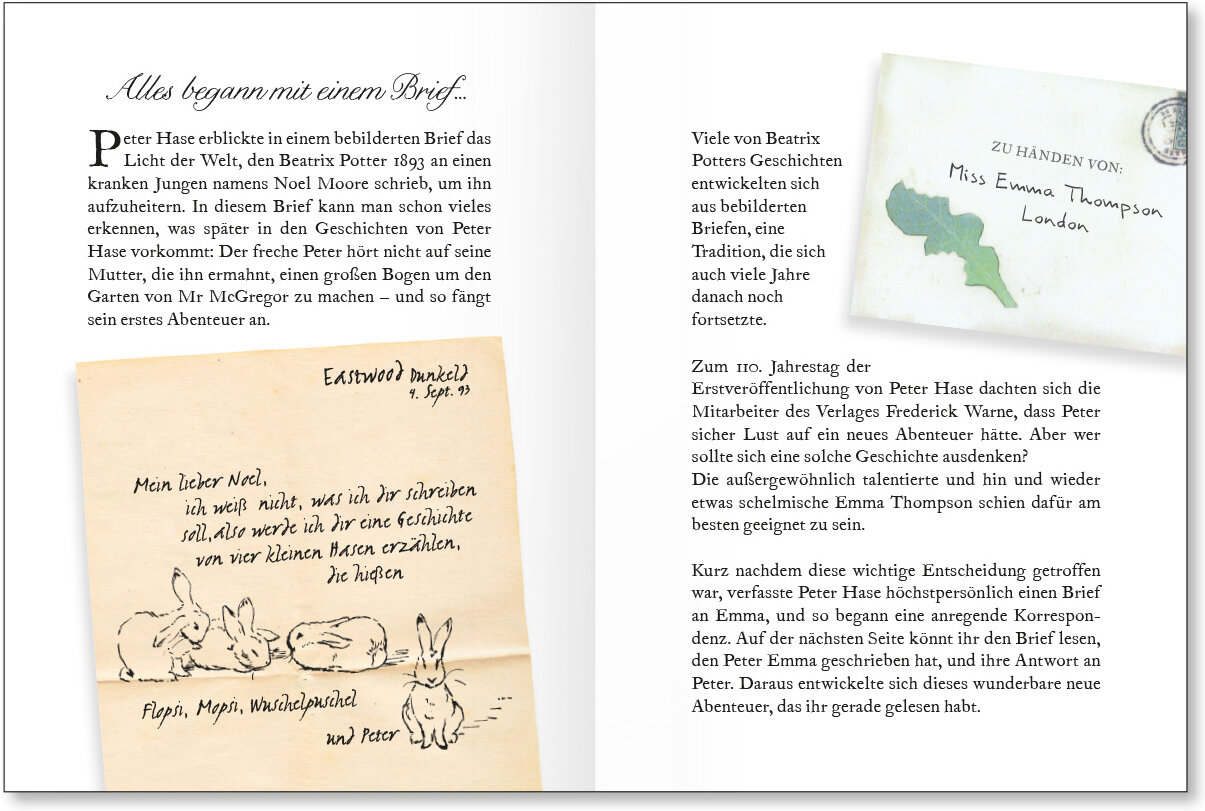 Alles begann mit einem Brief...
Peter Hase erblickte in einem bebilderten Brief das
Licht der Welt, den Beatrix Potter 1893 an einen
kranken Jungen namens Noel Moore schrieb, um ihn
aufzuheitern. In diesem Brief kann man schon vieles
erkennen, was später in den Geschichten von Peter
Hase vorkommt: Der freche Peter hört nicht auf seine
Mutter, die ihn ermahnt, einen großen Bogen um den
Garten von Mr McGregor zu machen – und so fängt
sein erstes Abenteuer an.
Eastwood Dunkeld
4. Sept. 93
Mein lieber Noel,
ich weiß nicht, was ich dir schreiben
soll, also werde ich dir eine Geschichte
von vier kleinen Hasen erzählen,
die hießen
Flopsi, Mopsi, Wuschelpuschel
und Peter
Viele von Beatrix
Potters Geschichten
entwickelten sich
aus bebilderten
Briefen, eine
Tradition, die sich
auch viele Jahre
danach noch
fortsetzte.
ZU HÄNDEN VON:
Miss Emma Thompson
London
Zum 110. Jahrestag der
Erstveröffentlichung von Peter Hase dachten sich die
Mitarbeiter des Verlages Frederick Warne, dass Peter
sicher Lust auf ein neues Abenteuer hätte. Aber wer
sollte sich eine solche Geschichte ausdenken?
Die außergewöhnlich talentierte und hin und wieder
etwas schelmische Emma Thompson schien dafür am
besten geeignet zu sein.
Kurz nachdem diese wichtige Entscheidung getroffen
war, verfasste Peter Hase höchstpersönlich einen Brief
an Emma, und so begann eine anregende Korrespon-
denz. Auf der nächsten Seite könnt ihr den Brief lesen,
den Peter Emma geschrieben hat, und ihre Antwort an
Peter. Daraus entwickelte sich dieses wunderbare neue
Abenteuer, das ihr gerade gelesen habt.